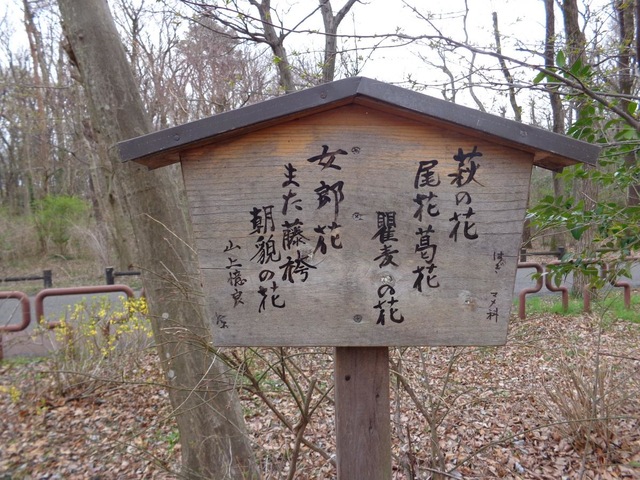 萩の花
はぎ マメ科
尾花 葛花
瞿麦の花
女郎花
また藤袴
朝貌の花
山上憶良